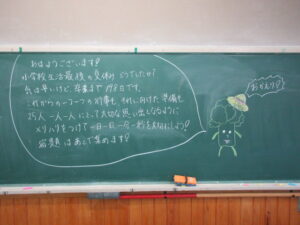 おはようございます！
小学校生活最後の夏休み どうでしたか？
気は早いけど、卒業まで198日です。
これからの一つ一つの行事も、それに向けた準備も、
25人 一人一人にとって大切な思い出になるように
メリハリをつけて一日一日、一分一秒を大切にしよう！
宿題はあとで集めます！
おかえり！